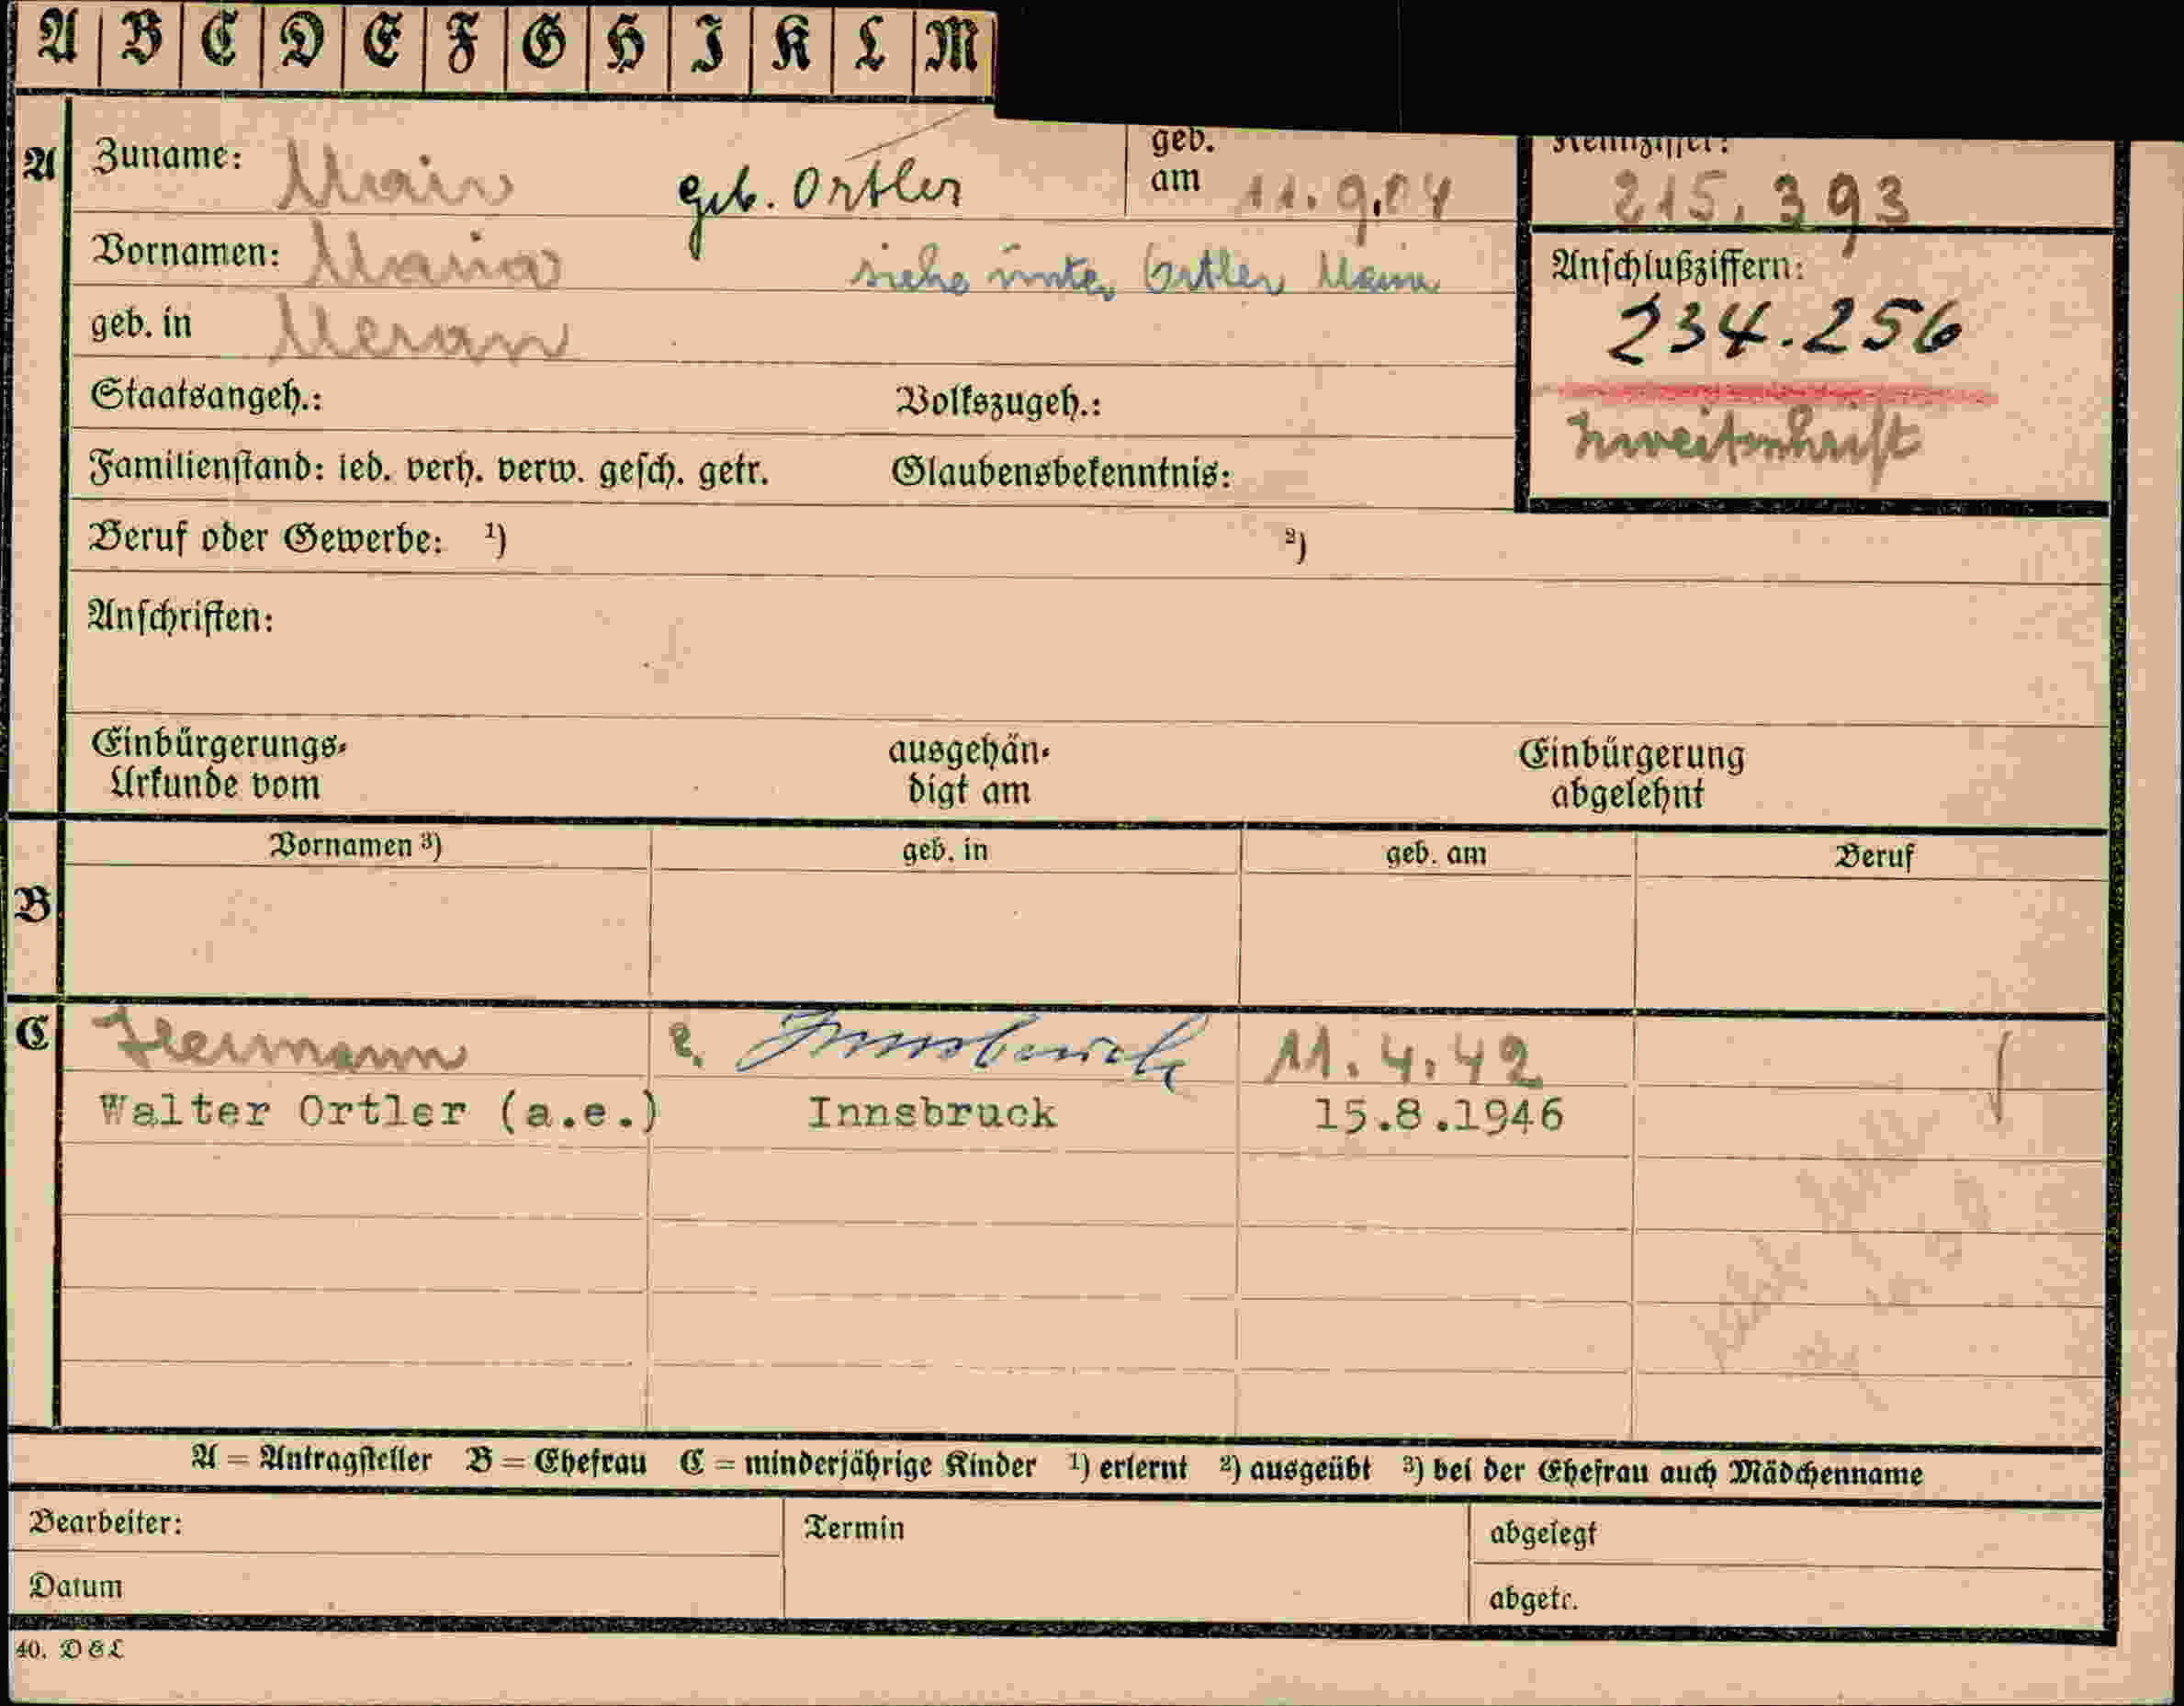 A B C D E F G H I K L M
A Zuname: Mair geb. Ortler geb. am 11.9.04 Kennziffer: 215.393
Vornamen: Maria siehe unter Ortler Maria
Anschlußziffern: 234.256
geb. in Meran
Staatsangeh.: Volkszugeh.:
Zweitschrift
Familienstand: led. verh. verw. gesch. getr. Glaubensbekenntnis:
Beruf oder Gewerbe: 1) 2)
Anschriften:
Einbürgerungs- ausgehän- Einbürgerung
Urkunde vom digt am abgelehnt
Vornamen 3) geb. in geb. am Beruf
B
C Hermann e. Innsbruck 11.4.42
Walter Ortler (a.e.) Innsbruck 15.8.1946
A = Antragsteller B = Ehefrau C = minderjährige Kinder 1) erlernt 2) ausgeübt 3) bei der Ehefrau auch Mädchenname
Bearbeiter: Termin abgelegt
Datum abgetr.
40. DEL